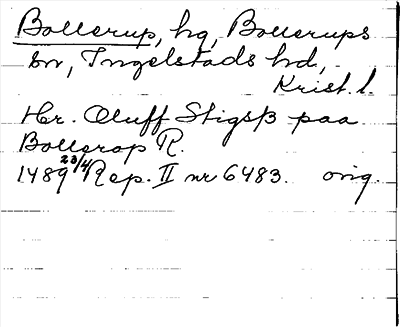 Bollerup, hg, Bollerups
sn, Ingelstads hd,
Krist. l.
Hr. Oluff Stigsß paa
Bollerop R.
1489 23/4 Rep. II nr 6483. orig.